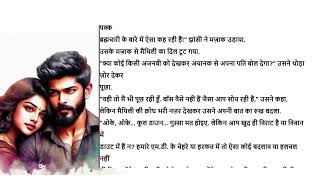 पक्क
ब्रह्मचारी के बारे में ऐसा कह रही हैं!" झांसी ने मज़ाक उड़ाया.
उसके मज़ाक से मैथिली का दिल टूट गया.
"क्या कोई किसी अजनबी को देखकर अचानक से अपना पति बोल देगा?" उसने थोड़ा
ज़ोर देकर
पूछा.
"वही तो मैं भी पूछ रही हूँ. बॉस वैसे नहीं हैं जैसा आप सोच रही हैं," उसने कहा,
लेकिन मैथिली की क्रोध भरी नज़र देखकर उसने अपनी बात का रूख बदला.
"ओके, ओके... कूल डाउन... गुस्सा मत होइए. लेकिन आप खुद ही विराट है या विवान
में
डाउट में हैं न? हमारे एम.डी. के चेहरे या हरकत में तो ऐसा कोई बदलाव या हलचल
नहीं